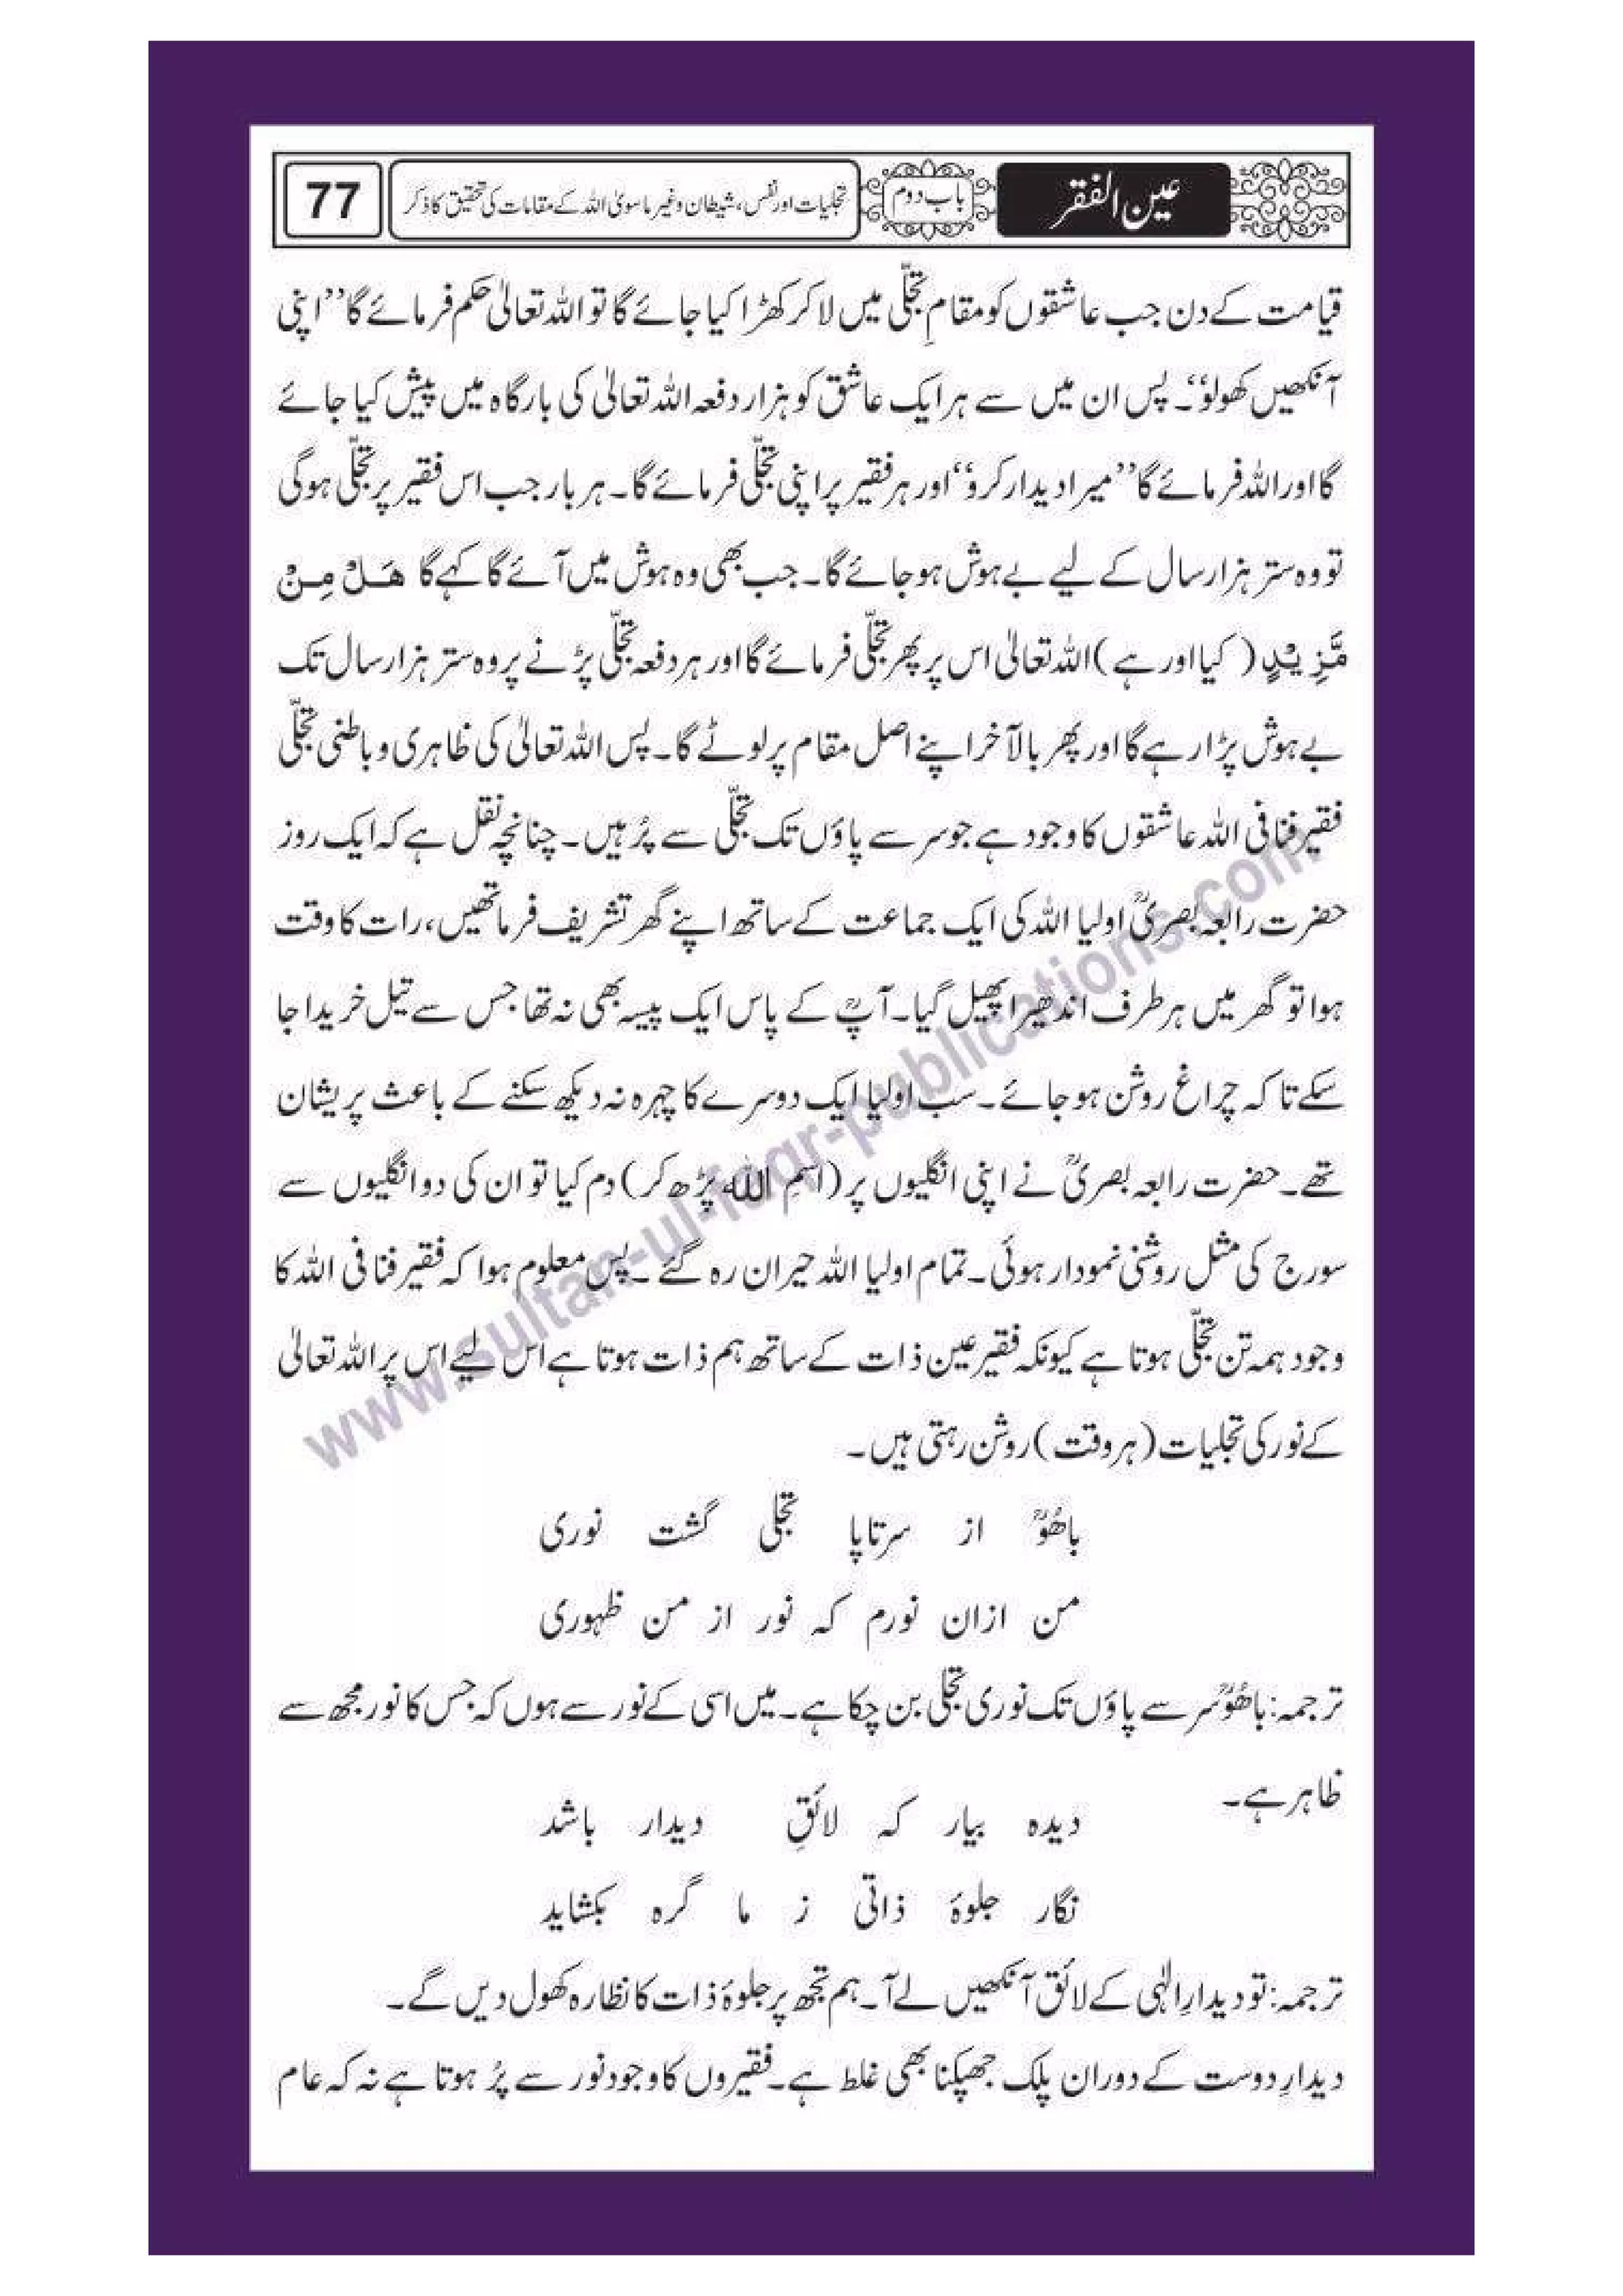 عین الفقر
باب دوم
تجلیات اور نفس، شیطان وغیر ماسویٰ اللہ کے مقامات کی تحقیق کا ذکر
77
قیامت کے دن جب عاشقوں کو مقامِ تجلّی میں لا کر کھڑا کیا جائے گا تو اللہ تعالیٰ حکم فرمائے گا ’’اپنی
آنکھیں کھولو‘‘۔ پس ان میں سے ہر ایک عاشق کو ہزار دفعہ اللہ تعالیٰ کی بارگاہ میں پیش کیا جائے
گا اور اللہ فرمائے گا ’’میرا دیدار کرو‘‘ اور ہر فقیر پر اپنی تجلّی فرمائے گا۔ ہر بار جب اس فقیر پر تجلّی ہوگی
تو وہ ستر ہزار سال کے لیے بے ہوش ہو جائے گا۔ جب بھی وہ ہوش میں آئے گا کہے گا ھَلْ مِنْ
مَّزِیْدٍ (کیا اور ہے) اللہ تعالیٰ اس پر پھر تجلّی فرمائے گا اور ہر دفعہ تجلّی پڑنے پر وہ ستر ہزار سال تک
بے ہوش پڑا رہے گا اور پھر بالآخر اپنے اصل مقام پر لوٹے گا۔ پس اللہ تعالیٰ کی ظاہری و باطنی تجلّی
فقیر فنا فی اللہ عاشقوں کا وجود ہے جو سر سے پاؤں تک تجلّی سے پُر ہیں۔ چنانچہ نقل ہے کہ ایک روز
حضرت رابعہ بصریؒ اولیا اللہ کی ایک جماعت کے ساتھ اپنے گھر تشریف فرما تھیں، رات کا وقت
ہوا تو گھر میں ہر طرف اندھیرا پھیل گیا۔ آپؒ کے پاس ایک پیسہ بھی نہ تھا جس سے تیل خریدا جا
سکے تاکہ چراغ روشن ہو جائے۔ سب اولیا ایک دوسرے کا چہرہ نہ دیکھ سکنے کے باعث پریشان
تھے۔ حضرت رابعہ بصریؒ نے اپنی انگلیوں پر (اسمِ اللہ پڑھ کر) دم کیا تو ان کی دو انگلیوں سے
سورج کی مثل روشنی نمودار ہوئی۔ تمام اولیا اللہ حیران رہ گئے۔ پس معلوم ہوا کہ فقیر فنا فی اللہ کا
وجود ہمہ تن تجلّی ہوتا ہے کیونکہ فقیر عین ذات کے ساتھ ہم ذات ہوتا ہے اس لیے اس پر اللہ تعالیٰ
کے نور کی تجلیات (ہر وقت) روشن رہتی ہیں۔
باھُوؒ از سرتاپا تجلی گشت نوری
من ازان نورم کہ نور از من ظہوری
ترجمہ: باھُوؒ سر سے پاؤں تک نوری تجلی بن چکا ہے۔ میں اسی کے نور سے ہوں کہ جس کا نور مجھ سے
ظاہر ہے۔
دیدہ بیار کہ لائقِ دیدار باشد
نگار جلوۂ ذاتی ز ما گرہ بکشاید
ترجمہ: تو دیدارِ الٰہی کے لائق آنکھیں لے آ۔ ہم تجھ پر جلوۂ ذات کا نظارہ کھول دیں گے۔
دیدارِ دوست کے دوران پلک جھپکنا بھی غلط ہے۔ فقیروں کا وجود نور سے پُر ہوتا ہے نہ کہ عام
www.sultan-ul-faqr-publications.com